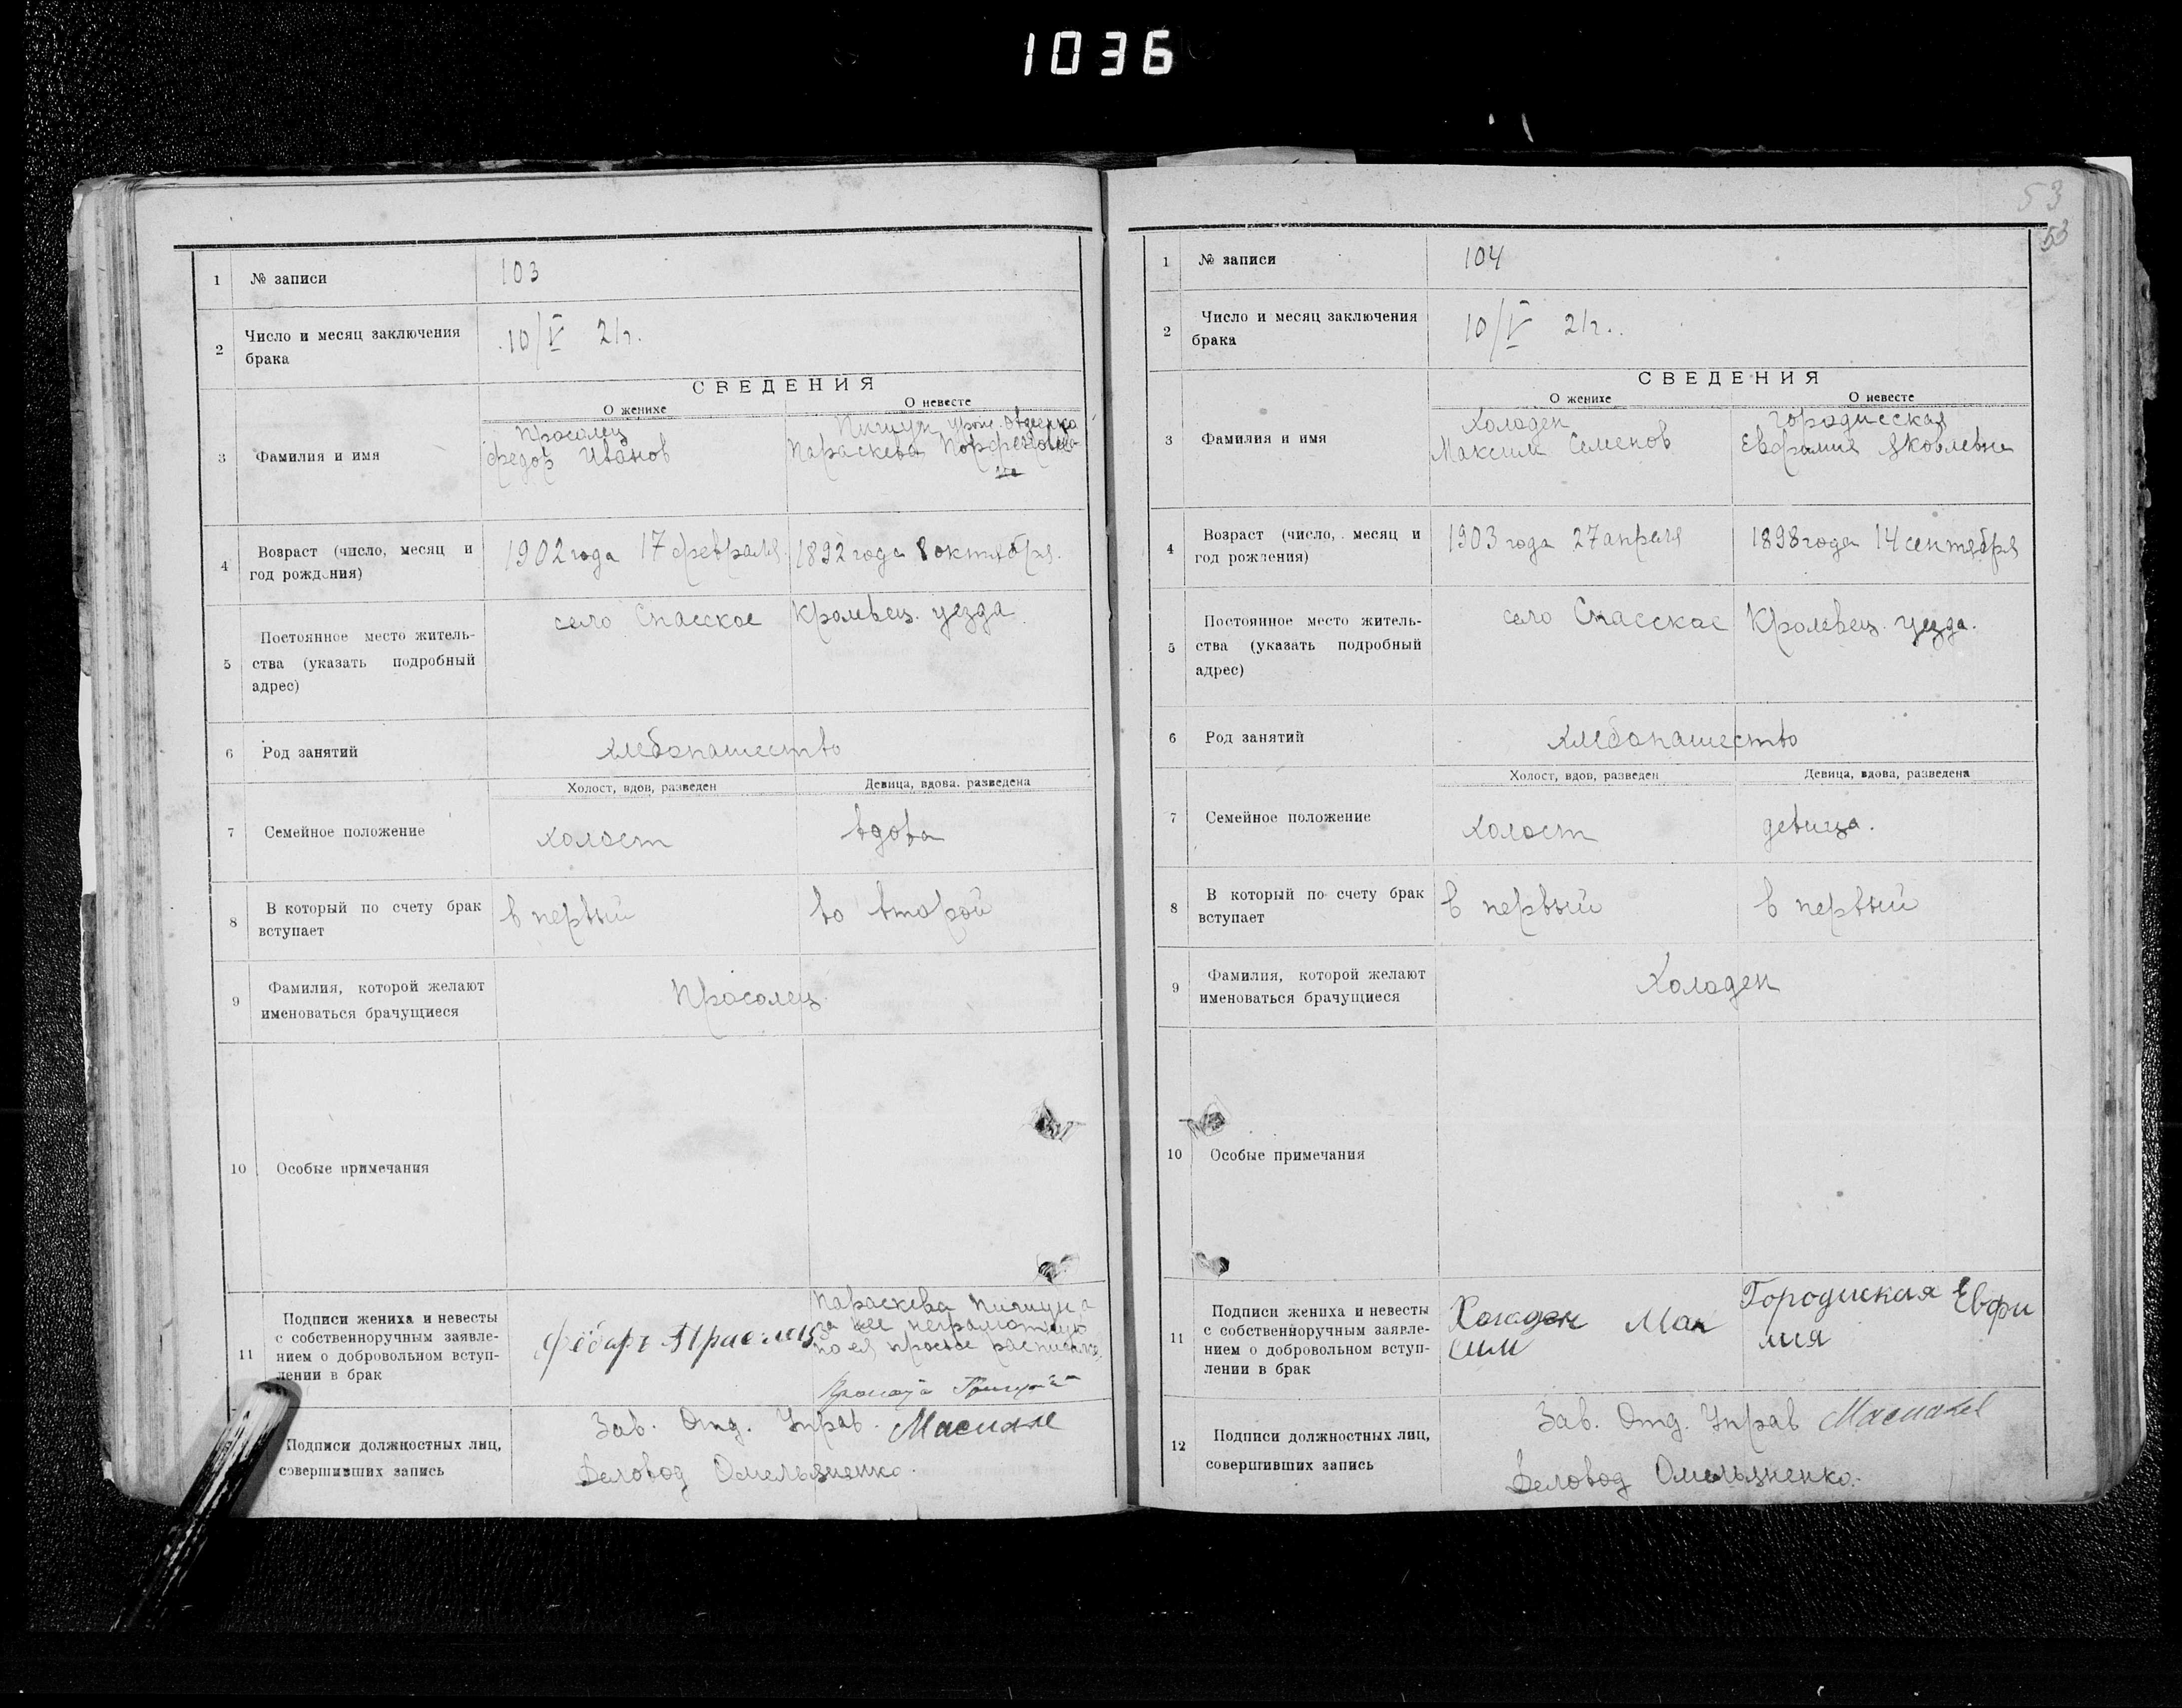 1036
1 № записи 103
2 Число и месяц заключения
брака
10/V 21г.
СВЕДЕНИЯ
О женихе О невесте
3 Фамилия и имя
Просолец
Федор Иванов
Пигиун урож. Овдиенко
Параскева Порфентьев-
на
4 Возраст (число, месяц и
год рождения)
1902 года 17 февраля
1892 года 8 октября.
5 Постоянное место житель-
ства (указать подробный
адрес)
село Спасское Кролевец. уезда
6 Род занятий
хлебопашество
Холост, вдов, разведен Девица, вдова, разведена
7 Семейное положение
холост вдова
8 В который по счету брак
вступает
в первый во второй
9 Фамилия, которой желают
именоваться брачущиеся
Просолец
10 Особые примечания
11 Подписи жениха и невесты
с собственноручным заявле-
нием о добровольном вступ-
лении в брак
Параскева
за нее неграмотную
по ея просьбе
Подписи должностных лиц,
совершивших запись
Зав. Отд. Управ.
Деловод Омельяненко.
53
53
1 № записи 104
2 Число и месяц заключения
брака
10/V 21г..
СВЕДЕНИЯ
О женихе О невесте
3 Фамилия и имя
Холоден
Максим Семенов
Городисская
Евфимия Яковлевна
4 Возраст (число, месяц и
год рождения)
1903 года 27 апреля
1898 года 14 сентября
5 Постоянное место житель-
ства (указать подробный
адрес)
село Спасское Кролевец. уезда.
6 Род занятий
хлебопашество
Холост, вдов, разведен Девица, вдова, разведена
7 Семейное положение
холост девица.
8 В который по счету брак
вступает
в первый в первый
9 Фамилия, которой желают
именоваться брачущиеся
Холоден
10 Особые примечания
11 Подписи жениха и невесты
с собственноручным заявле-
нием о добровольном вступ-
лении в брак
Холоден Мак
сим
Городиская Евфи
мия
12 Подписи должностных лиц,
совершивших запись
Зав. Отд. Управ
Деловод Омельяненко.